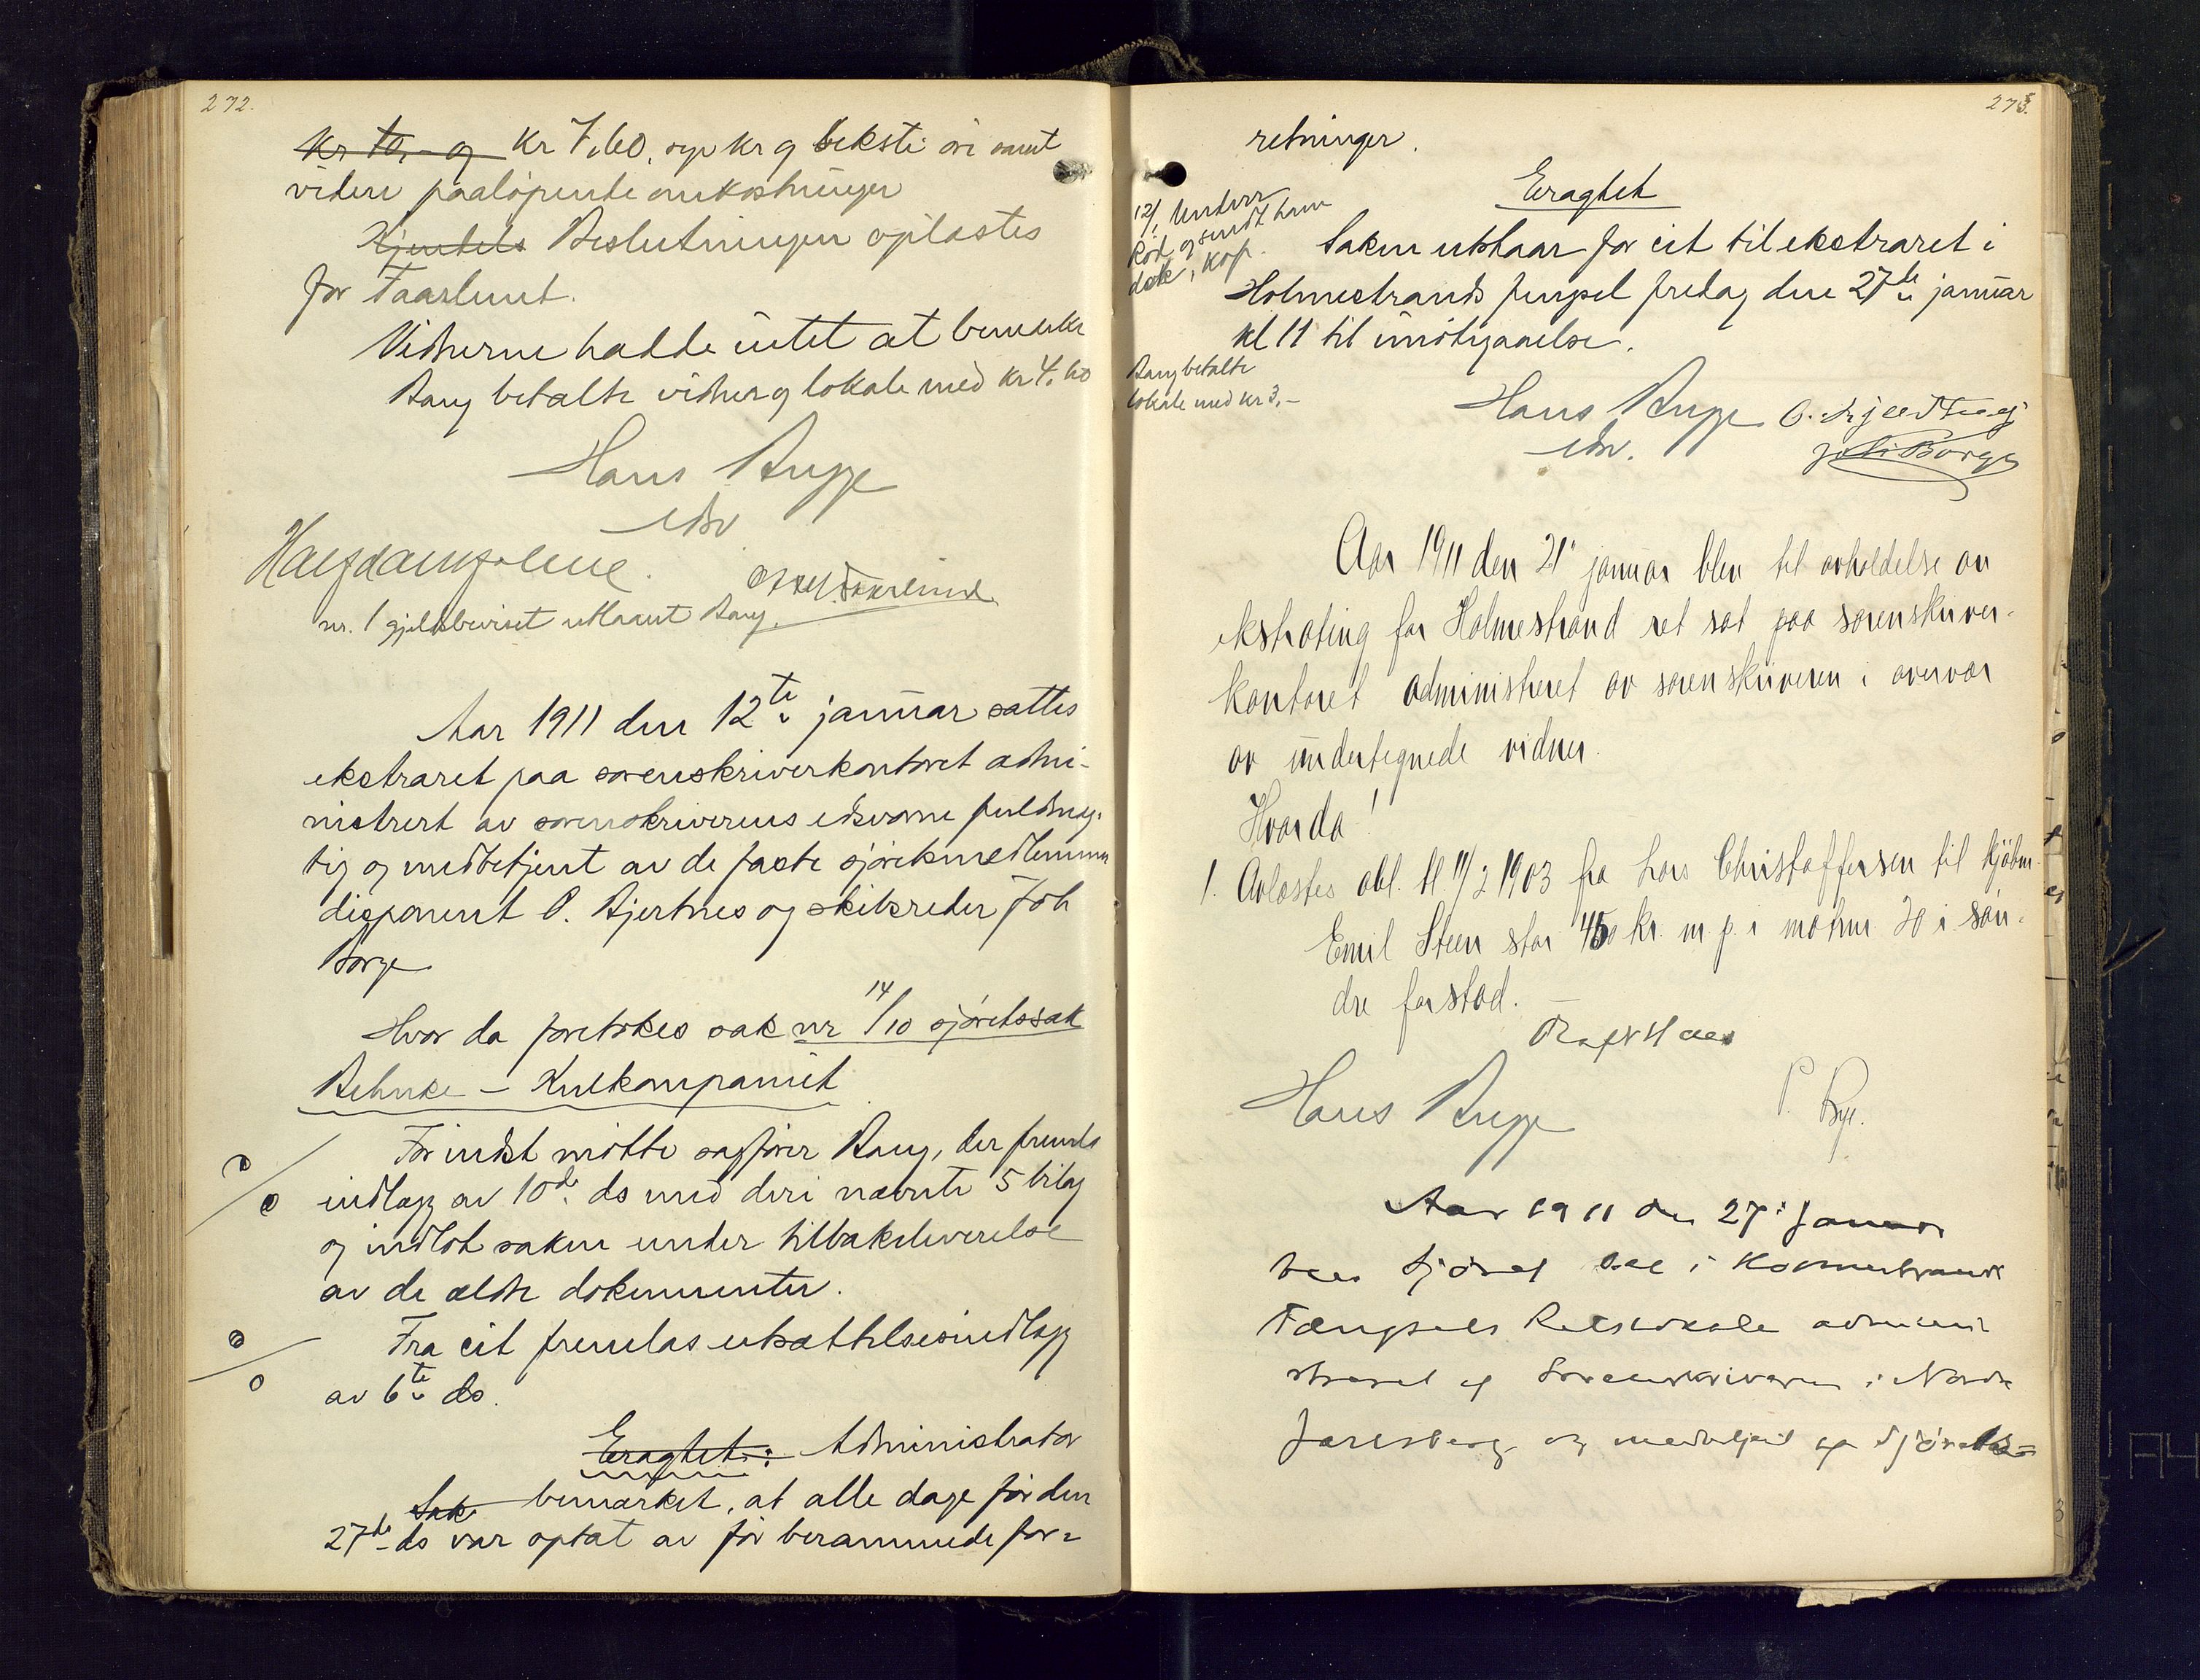 272.
kr 10,- og kr 7,60, syv kr og seksti øre samt
videre paaløpende omkostninger
Kjendels Beslutningen oplæstes
for Taarlund.
Vidnerne hadde intet at bemerke
Bang betalte vidner og lokale med kr 4,60
Hans Bugge
edsv
nr. 1 gjeldsbeviset utlaant Bang.
Aar 1911 den 12te januar sattes
ekstraret paa sorenskriverkontoret admi-
nistrert av sorenskriverens edsvorne fuldmæg-
tig og medbetjent av de faste sjøretsmedlemmer
disponent O. Gjertnes og skibsreder Joh
Borge
Hvor da foretokes sak nr 14/10 sjøretssak
Behnke - Kulkompaniet
For indst møtte sagfører Bang, der fremla
indlæg av 10de ds med deri nævnte 5 bilag
og indlot saken under tilbakeleverelse
av de ældre dokumenter.
Fra cit fremlas utsættelsesindlæg
av 6te ds.
Eragtet: Administrator
Sake bemærket, at alle dage før den
27de ds var optat av før berammede for-
273.
retninger.
Eragtet
12/1 Underr
og sendt ham
dok i kop.
Saken utstaar for cit til ekstraret i
Holmestrands fengsel fredag den 27de januar
kl 11 til imøtegaaelse.
Bang betalte
lokale med kr 3.-
Hans Bugge
edsv.
Joh Borge
Aar 1911 den 21' januar blev til avholdelse av
ekstrating for Holmestrand ret sat paa sorenskriver-
kontoret administreret av sorenskriveren i overvær
av undertegnede vidner.
Hvorda!
1. Avlæstes obl. dt. 11/2 1903 fra Lars Christoffersen til kjøbm.
Emil Steen stor 450 kr. m. p. i matnr. 20 i søn-
dre forstad.
Hans Bugge
P. Bye.
Aar 1911 den 27' Januar
blev Sjøret sat i Holmestrand
Fængsels Retslokale admini
streret af Sorenskriveren i Nordre
Jarlsberg og medbetjent af Sjørets-